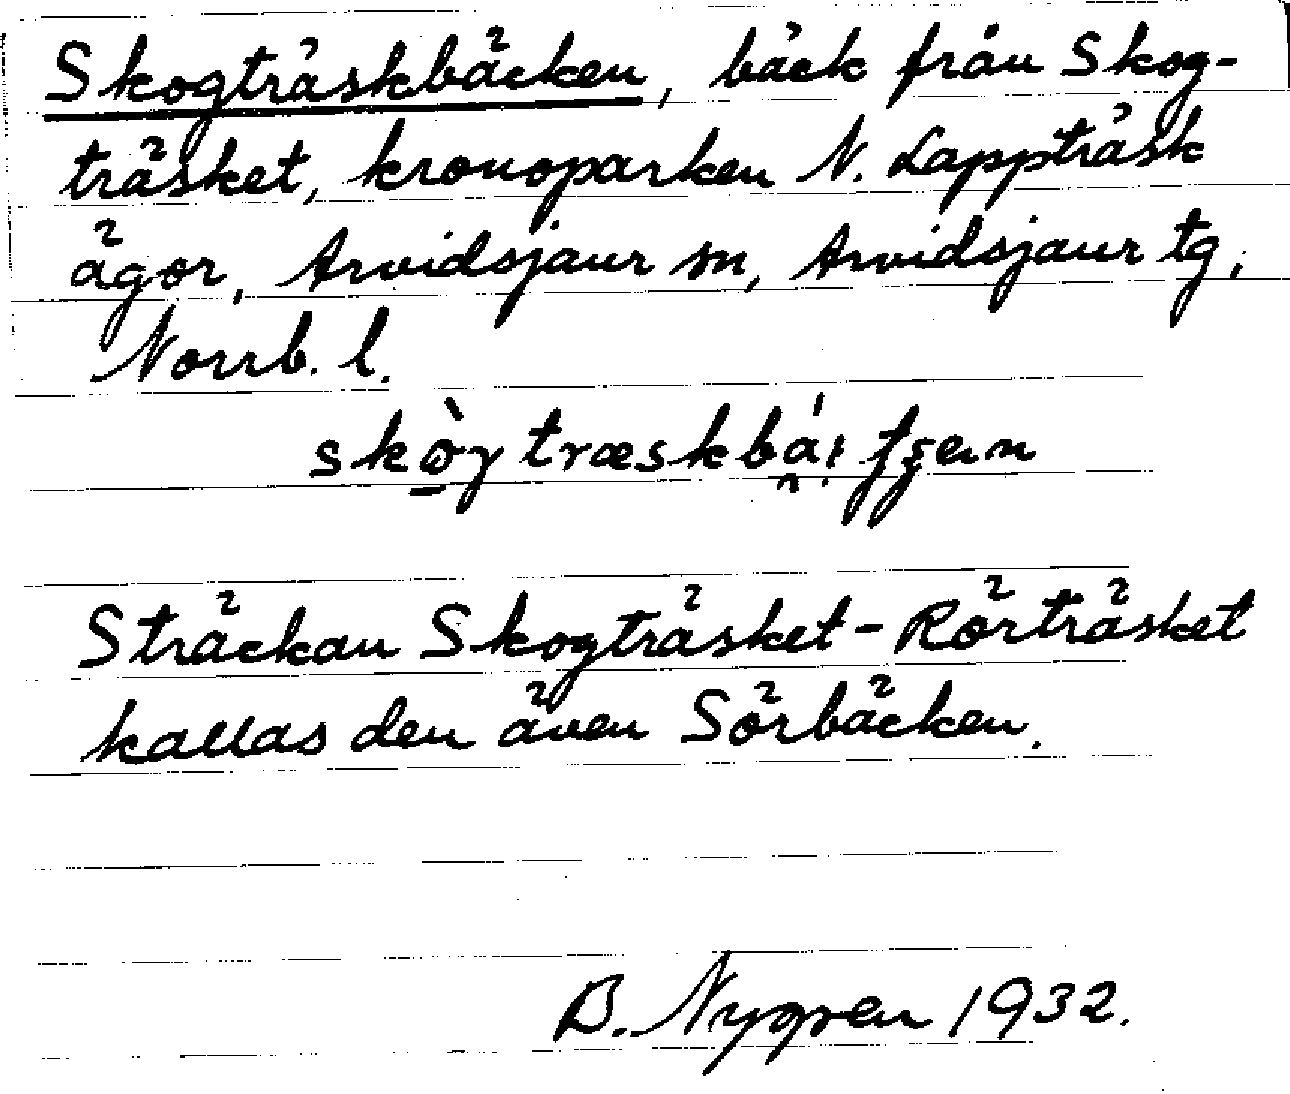 Skogträskbäcken, bäck från Skog-
träsket, kronoparken N. Lappträsk
ägor, Arvidsjaur sn, Arvidsjaur tg,
Norrb. l.
Sträckan Skogträsket - Rörträsket
kallas den även Sörbäcken.
B. Nygren 1932.